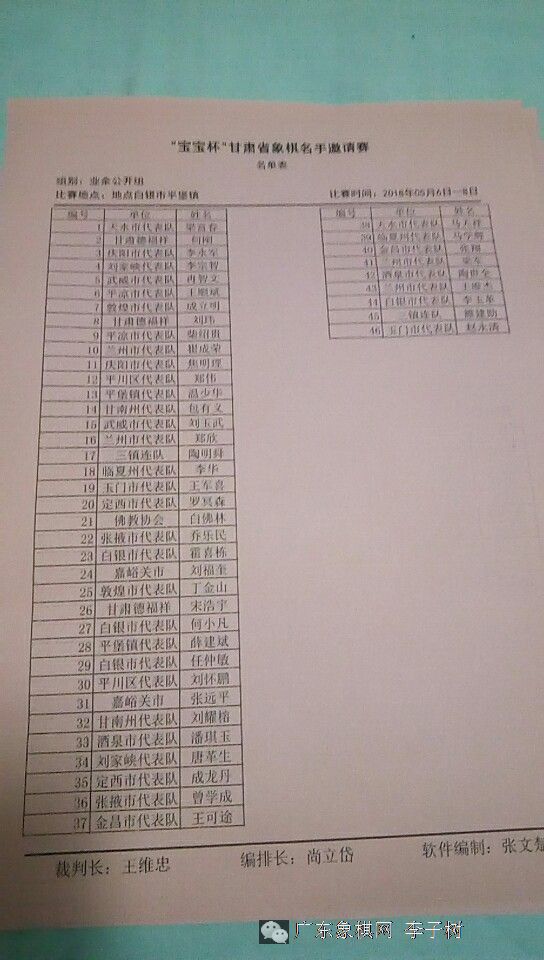 "宝宝杯"甘肃省象棋名手邀请赛
名单表
组别：业余公开组
比赛地点：地点白银市平堡镇 比赛时间：2018年05月6日--8日
编号 单位 姓名
1 天水市代表队 梁富春
2 甘肃德福祥 何刚
3 庆阳市代表队 李永军
4 刘家峡代表队 李宗智
5 武威市代表队 冉智文
6 平凉市代表队
7 敦煌市代表队 成立明
8 甘肃德福祥 刘玮
9 平凉市代表队 柴绍贵
10 兰州市代表队 崔成荣
11 庆阳市代表队 焦明理
12 平川区代表队 郑伟
13 平堡镇代表队 温少华
14 甘南州代表队 包有义
15 武威市代表队 刘玉武
16 兰州市代表队 郑欣
17 三镇连队 陶明舜
18 临夏州代表队 李华
19 玉门市代表队 王军喜
20 定西市代表队 罗冥森
21 佛教协会 白佛林
22 张掖市代表队 乔乐民
23 白银市代表队 霍喜栋
24 嘉峪关市 刘福奎
25 敦煌市代表队 丁金山
26 甘肃德福祥 宋浩宇
27 白银市代表队 何小凡
28 平堡镇代表队 薛建斌
29 白银市代表队 任仲敏
30 平川区代表队 刘怀鹏
31 嘉峪关市 张远平
32 甘南州代表队 刘耀榕
33 酒泉市代表队 潘琪玉
34 刘家峡代表队 唐革生
35 定西市代表队 成龙丹
36 张掖市代表队 曾学成
37 金昌市代表队 王可途
编号 单位 姓名
38 天水市代表队 马天祥
39 临夏州代表队 马学辉
40 金昌市代表队 张翔
41 兰州市代表队 梁军
42 酒泉市代表队 南世全
43 兰州市代表队 王维杰
44 白银市代表队 李玉革
45 三镇连队 滕建勋
46 玉门市代表队 赵永清
裁判长：王维忠 编排长：尚立岱 软件编制：张文楚
广东象棋网 李子树